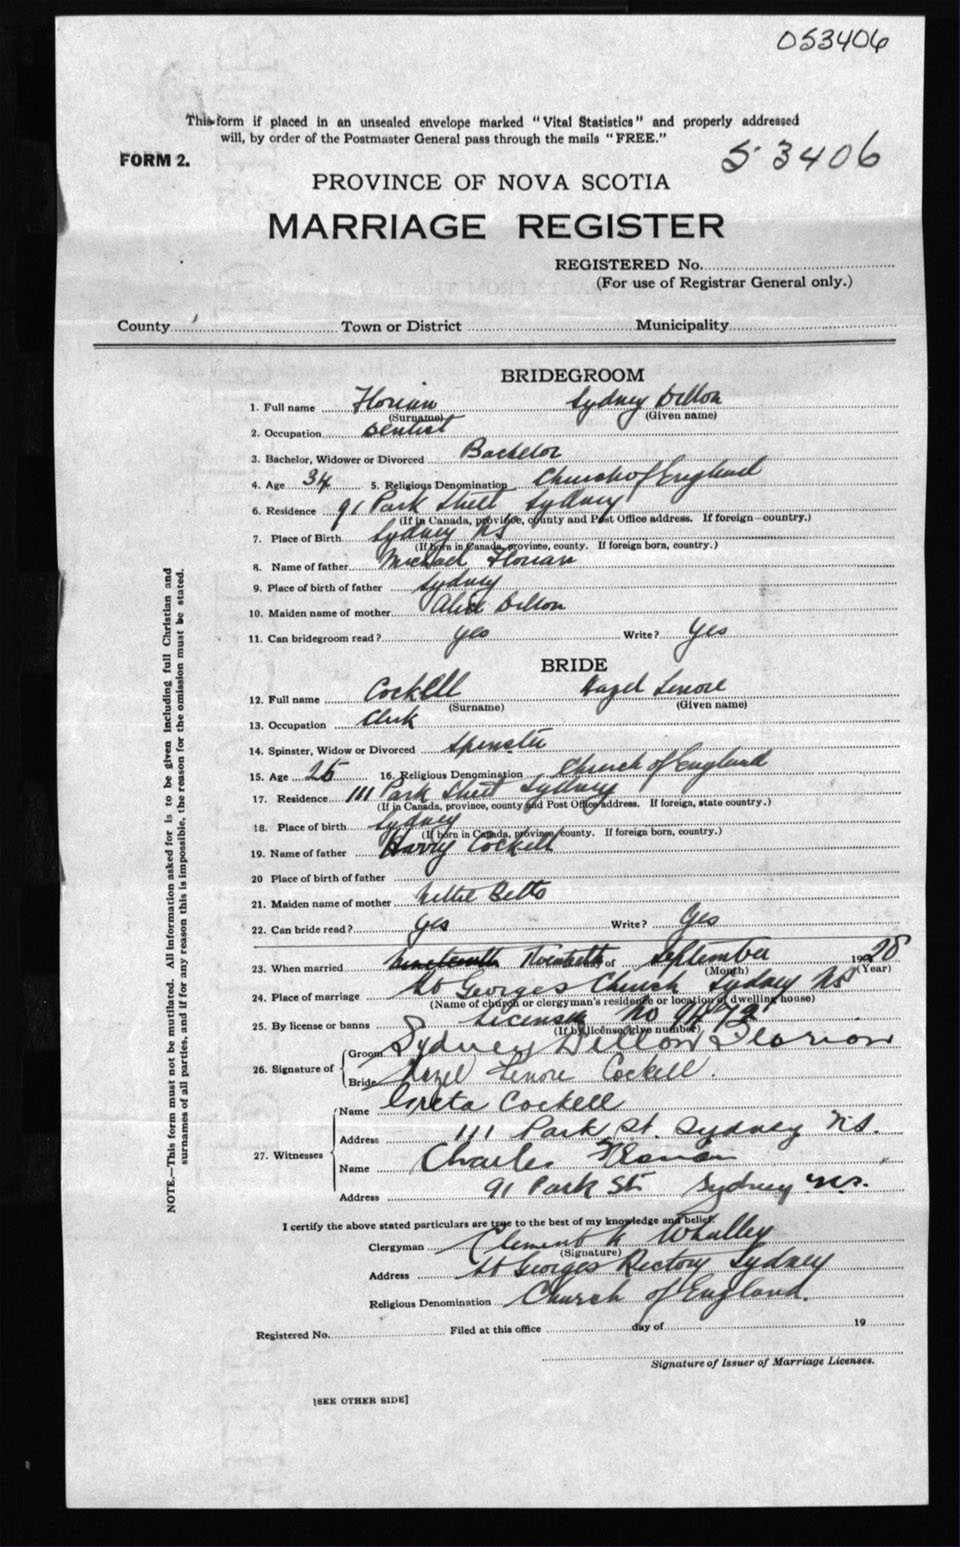 053406
This form if placed in an unsealed envelope marked "Vital Statistics" and properly addressed
will, by order of the Postmaster General pass through the mails "FREE."
FORM 2.
53406
PROVINCE OF NOVA SCOTIA
MARRIAGE REGISTER
REGISTERED No.
(For use of Registrar General only.)
County Town or District Municipality
BRIDEGROOM
1. Full name Florian Sydney Dillon
(Surname) (Given name)
2. Occupation Dentist
3. Bachelor, Widower or Divorced Bachelor
4. Age 34 5. Religious Denomination Church of England
6. Residence 91 Park Street Sydney
(If in Canada, province, county and Post Office address. If foreign—country.)
7. Place of Birth Sydney NS
(If born in Canada, province, county. If foreign born, country.)
8. Name of father Michael Florian
9. Place of birth of father Sydney
10. Maiden name of mother Alice Dillon
11. Can bridegroom read? Yes Write? Yes
BRIDE
12. Full name Cockell Hazel Lenore
(Surname) (Given name)
13. Occupation Clerk
14. Spinster, Widow or Divorced Spinster
15. Age 16. Religious Denomination Church of England
17. Residence 111 Park Street Sydney
(If in Canada, province, county and Post Office address. If foreign, state country.)
18. Place of birth Sydney
(If born in Canada, province, county. If foreign born, country.)
19. Name of father Harry Cockell
20 Place of birth of father
21. Maiden name of mother Nettie Betts
22. Can bride read? Yes Write? Yes
23. When married nineteenth Twentieth day of September 1928
(Month) (Year)
24. Place of marriage St Georges Church Sydney NS
(Name of church or clergyman's residence or location of dwelling house)
25. By license or banns License No 9472
(If by license, give number)
26. Signature of Groom Sydney Dillon Florian
Bride Hazel Lenore Cockell.
27. Witnesses Name Greta Cockell
Address 111 Park St. Sydney N.S.
Name Charles Florian
Address 91 Park St. Sydney N.S.
I certify the above stated particulars are true to the best of my knowledge and belief.
Clergyman Clement W Whalley
(Signature)
Address St Georges Rectory Sydney
Religious Denomination Church of England.
Registered No. Filed at this office day of 19
Signature of Issuer of Marriage Licenses.
[SEE OTHER SIDE]
NOTE.—This form must not be mutilated. All information asked for is to be given including full Christian and
surnames of all parties, and if for any reason this is impossible, the reason for the omission must be stated.